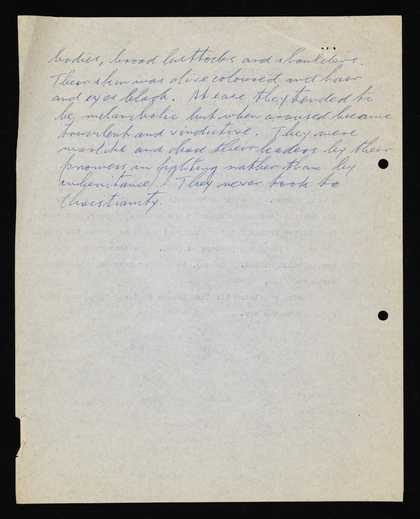 bodies, broad buttocks and shoulders.
Their skin was olive coloured and hair
and eyes black. At ease they tended to
be melancholic but when aroused became
truculent and vindictive. They were
warlike and chose their leaders by their
prowess in fighting rather than by
inheritance. They never took to
Christianity.